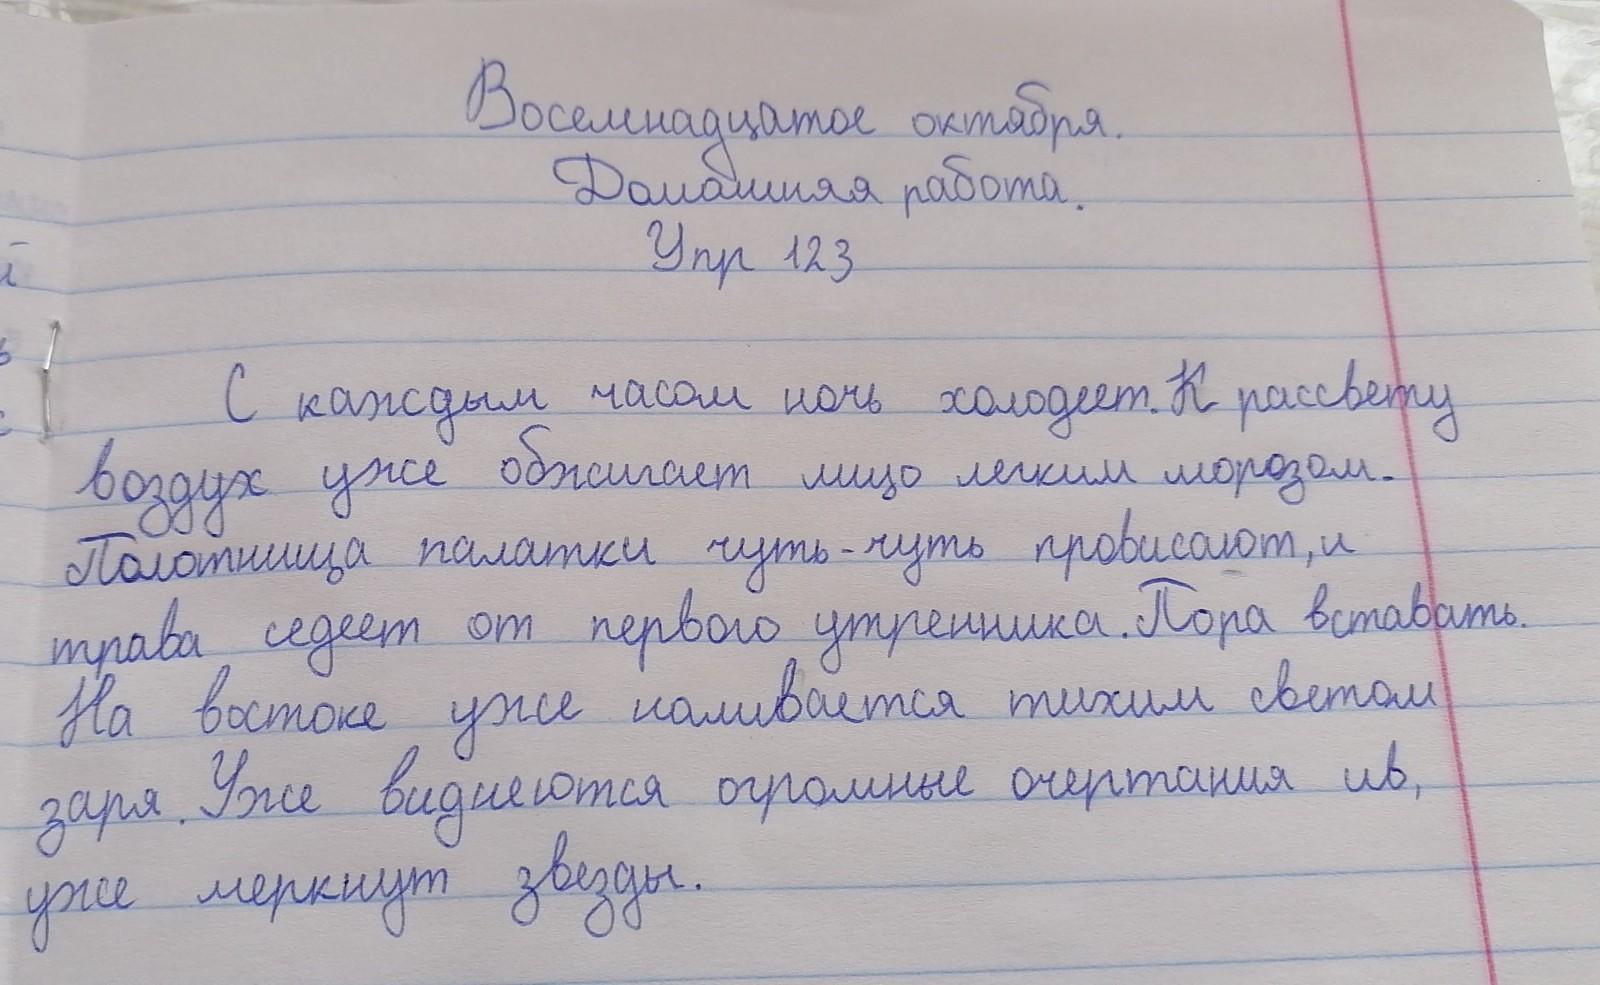 Восемнадцатое октября.
Домашняя работа.
Упр 123
С каждым часом ночь холодеет. К рассвету
воздух уже обжигает лицо легким морозом.
Полотнища палатки чуть-чуть провисают, и
трава седеет от первого утренника. Пора вставать.
На востоке уже наливается тихим светом
заря. Уже виднеются огромные очертания ив,
уже меркнут звезды.